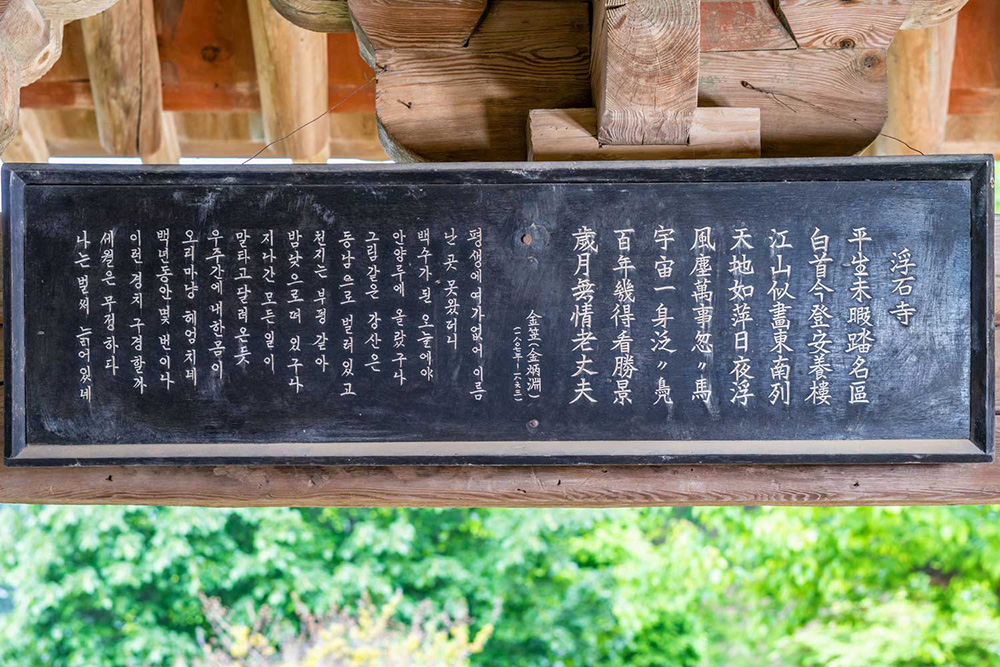 浮石寺
平生未暇踏名區
白首今登安養樓
江山似畫東南列
天地如萍日夜浮
風塵萬事忽〃馬
宇宙一身泛〃鳧
百年幾得看勝景
歲月無情老丈夫
金笠(金炳淵)
평생에 여가 없어 이름
난 곳 못 왔더니
백수가 된 오늘에야
안양루에 올랐구나
그림 같은 강산은
동남으로 벌려 있고
천지는 부평 같아
밤낮으로 떠 있구나
지나간 모든 일이
말타고 달려온 듯
우주간에 내 한 몸이
오리마냥 헤엄치네
백년동안 몇 번이나
이런 경치 구경할까
세월은 무정하다
나는 벌써 늙어있네